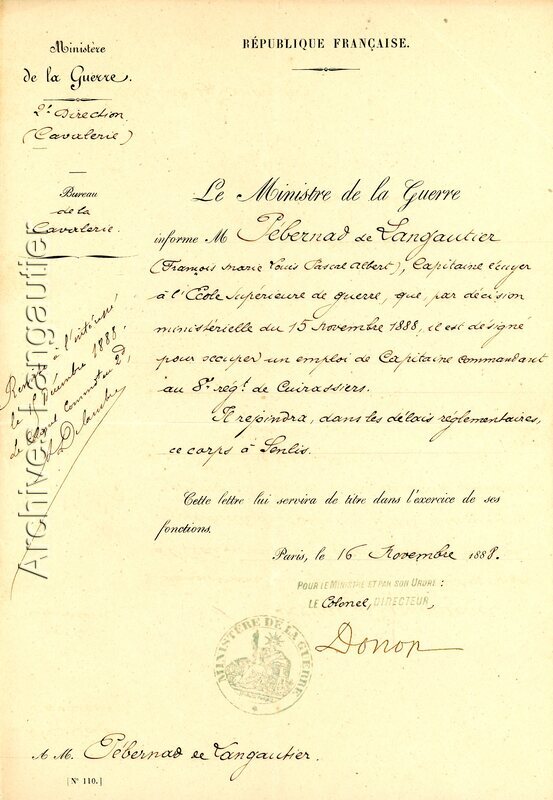 RÉPUBLIQUE FRANÇAISE.
Ministère
de la Guerre.
2e Direction.
(Cavalerie)
Bureau
de la
Cavalerie.
Le Ministre de la Guerre
informe M Pébernad de Langautier
(François Marie Louis Pascal Albert), Capitaine écuyer
à l'École Supérieure de guerre, que, par décision
ministérielle du 15 Novembre 1888, il est désigné
pour occuper un emploi de Capitaine commandant
au 8e régt. de Cuirassiers.
Il rejoindra, dans les délais réglementaires,
ce corps à Senlis.
Cette lettre lui servira de titre dans l'exercice de ses
fonctions.
Paris, le 16 Novembre 1888.
POUR LE MINISTRE ET PAR SON ORDRE :
LE Colonel, DIRECTEUR,
Donop
MINISTÈRE DE LA GUERRE
à l'intéressé
le Décembre 1888.
Le commandant
Delambre
Archives Langautier
A M. Pébernad de Langautier.
[N° 110.]